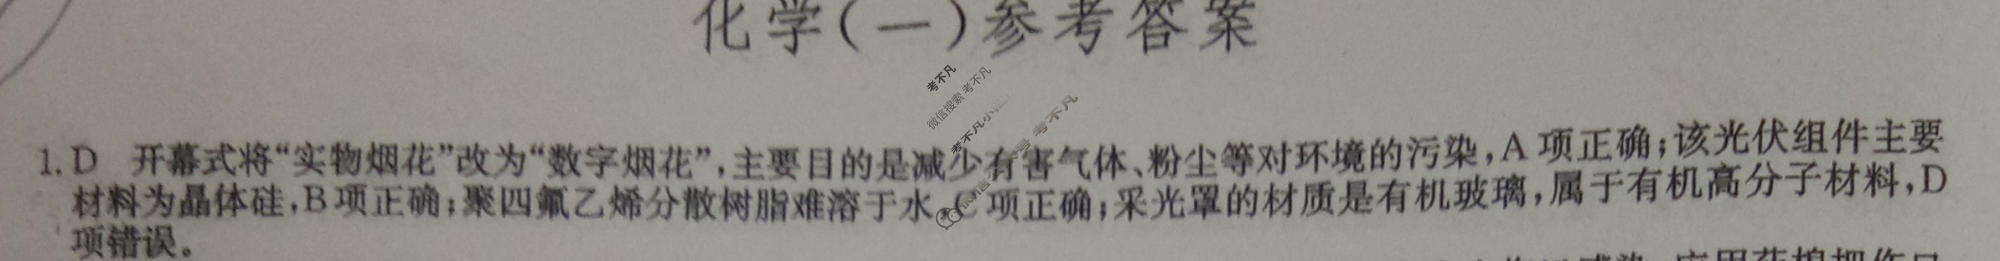 化学(一)参考答案
考不凡
微信搜索 考不凡
考不凡
1.D 开幕式将“实物烟花”改为“数字烟花”,主要目的是减少有害气体、粉尘等对环境的污染,A 项正确;该光伏组件主要
材料为晶体硅,B 项正确;聚四氟乙烯分散树脂难溶于水,C 项正确;采光罩的材质是有机玻璃,属于有机高分子材料,D
项错误。